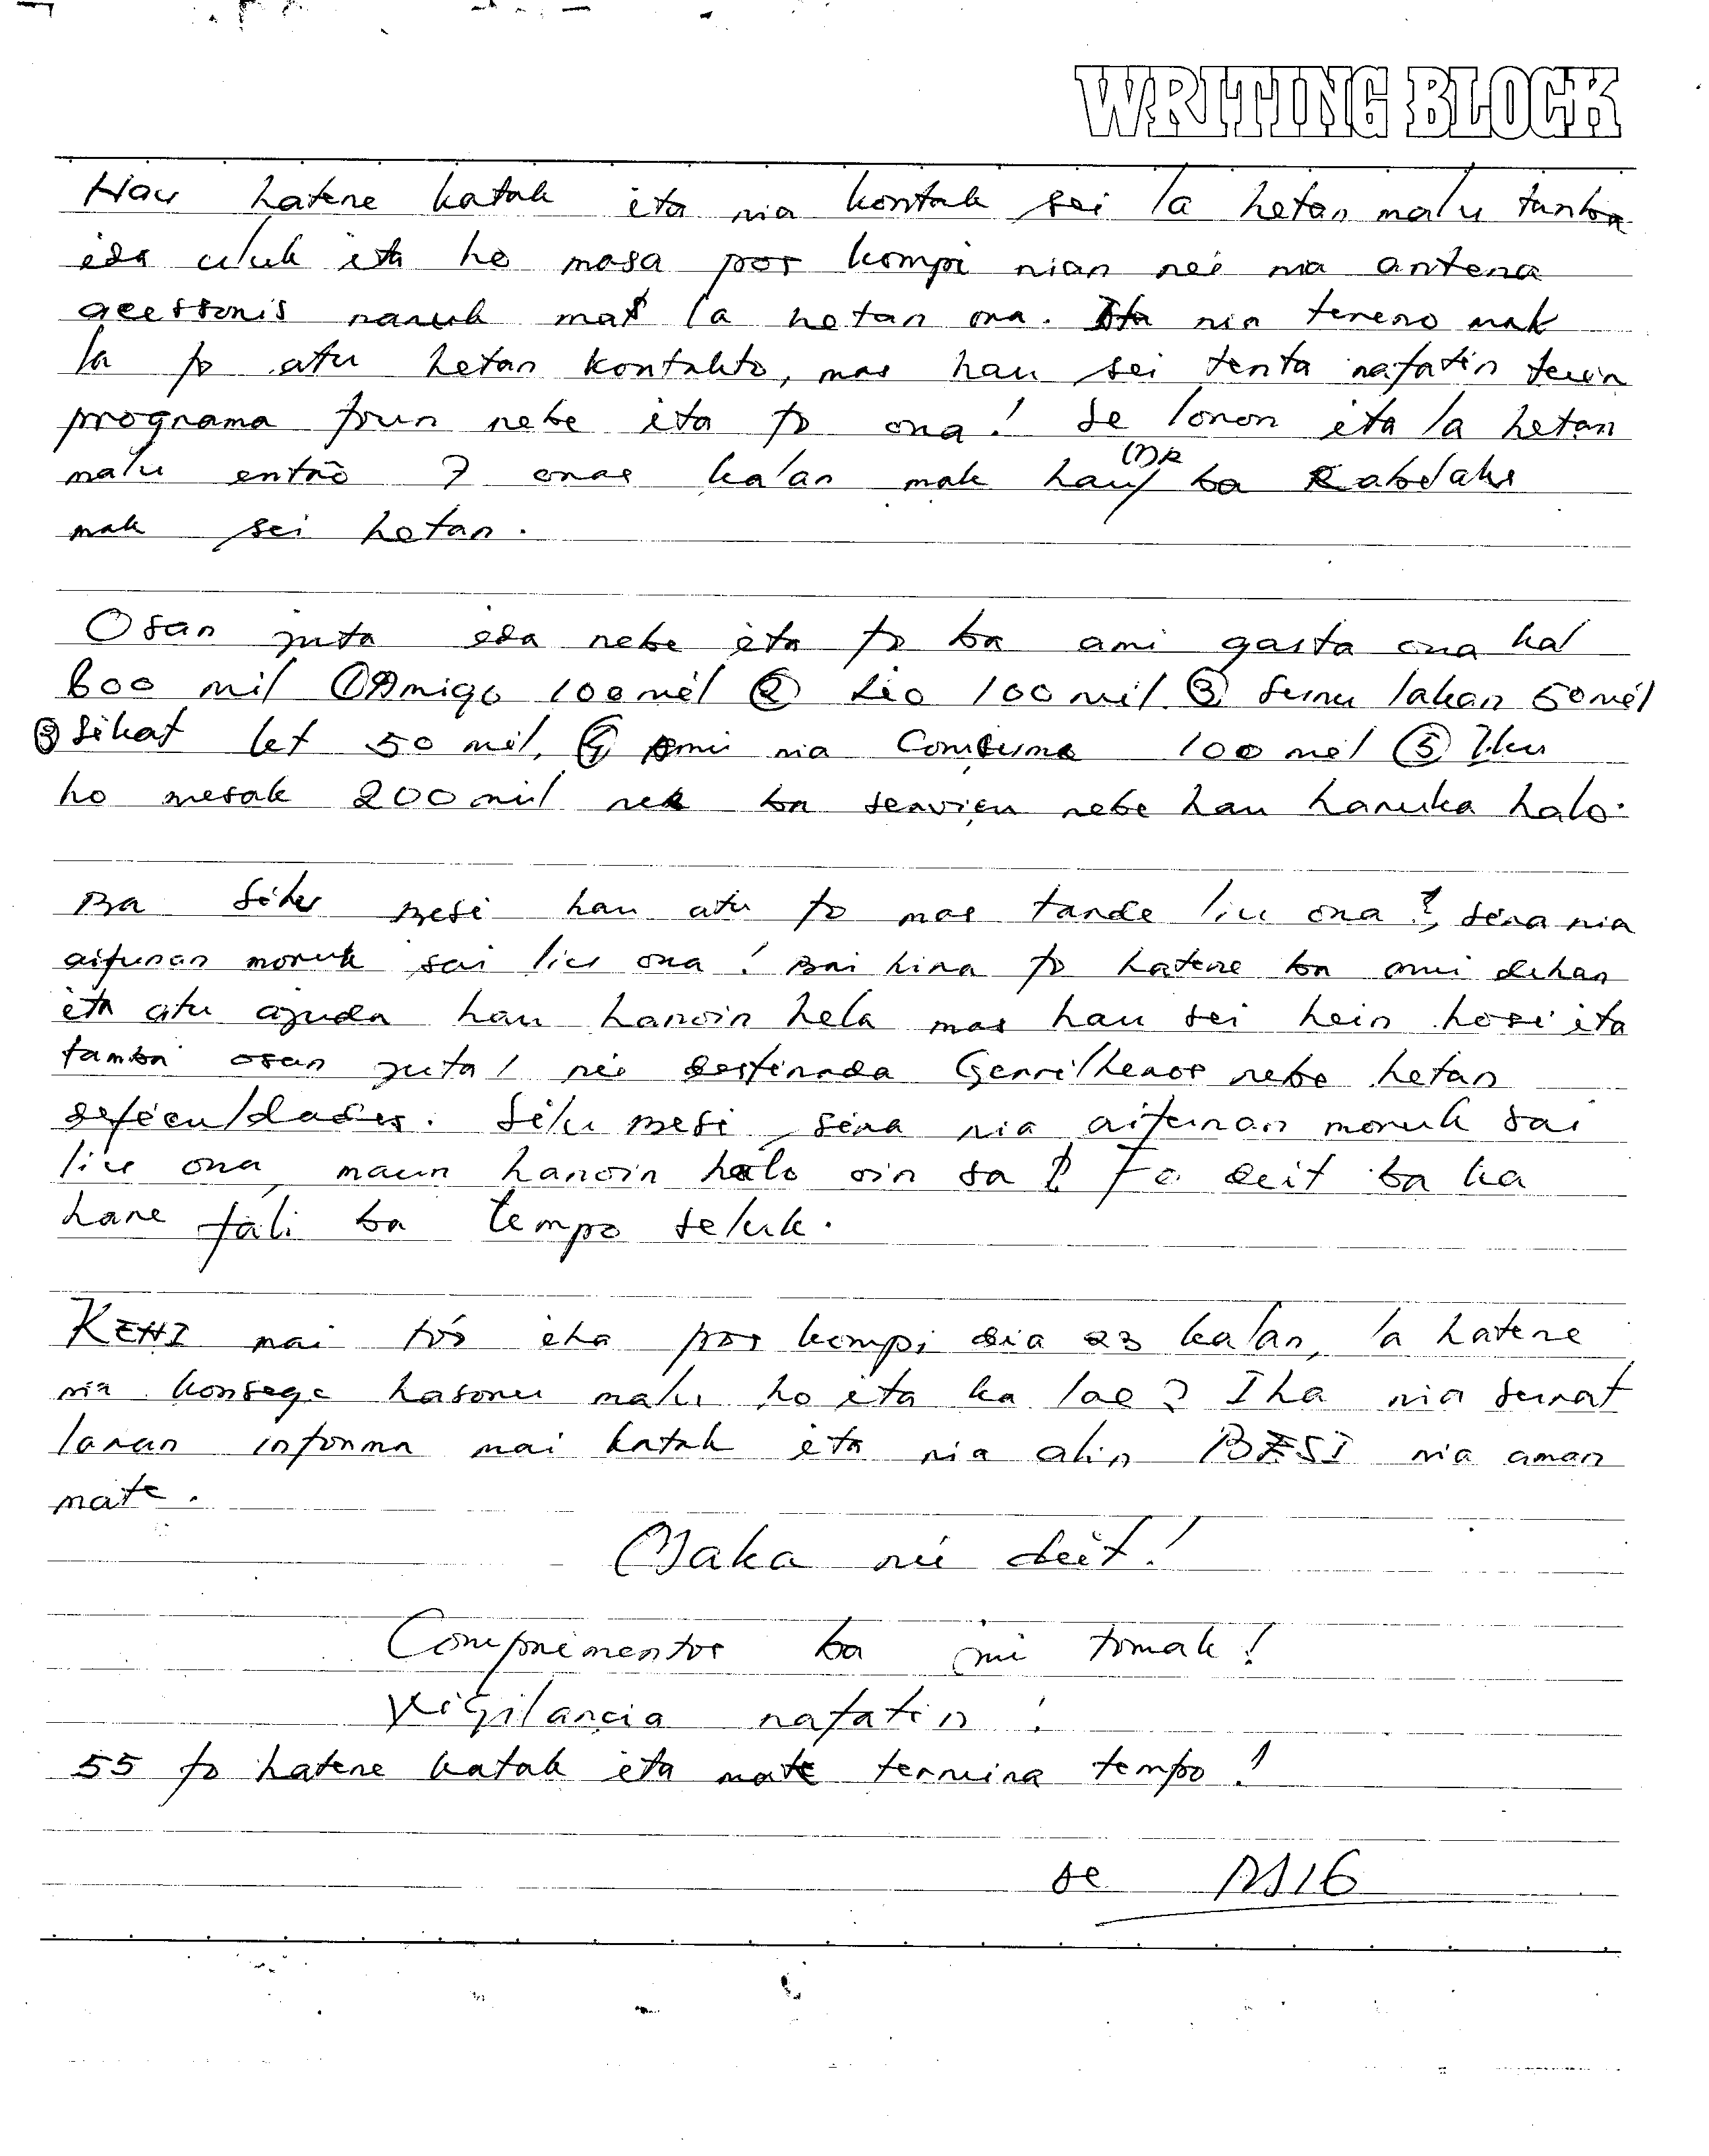 WRITING BLOCK
Hau hatene katak ita nia kontak sei la hetan malu tanba
ida uluk ita ho masa por kompi nian nei nia antena
acessoris naruk mas la hetan ona. Ita nia tereno mak
la fo atu hetan kontakto, mas hau sei tenta nafatin tuir
programa foun nebe ita fo ona! Se loron ita la hetan
malu entaõ 7 oras kalan mak hau ba Kabelaki
mak sei hetan.
Osan juta ida nebe ita fo ba ami gasta ona hal
600 mil ① Amigo 100 mil ② Lio 100 mil ③ Suru lakan 50 mil
③ Sikat let 50 mil, ④ Ami nia Consumo 100 mil ⑤ Iku
ho mesak 200 mil nee ba servicu nebe hau haruka halo.
Ba Siku Besi hau atu fo mas tarde liu ona !, sira nia
aifunan moruk sai liu ona ! Bai hira fo hatene ba ami dehan
ita atu ajuda hau hanoin hela mas hau sei hein hosi ita
tamba osan juta 1 nei destinada Gerrilheros nebe hetan
deficuldades. Siku Besi, sira nia aifunan moruk sai
liu ona, maun hanoin halo oin sa ! Fo deit ba ka
hare fali ba tempo seluk.
KEHI mai tós iha por kompi dia 23 kalan, la hatene
nia konsege hasoru malu ho ita ka lae ? Iha nia surat
laran informa mai katak ita nia alin BESI nia aman
mate.
Maka nii deit!
Comprimentos ba imi tomak!
Vigilancia nafatin !
55 fo hatene katak ita mate termina tempo !
se M16